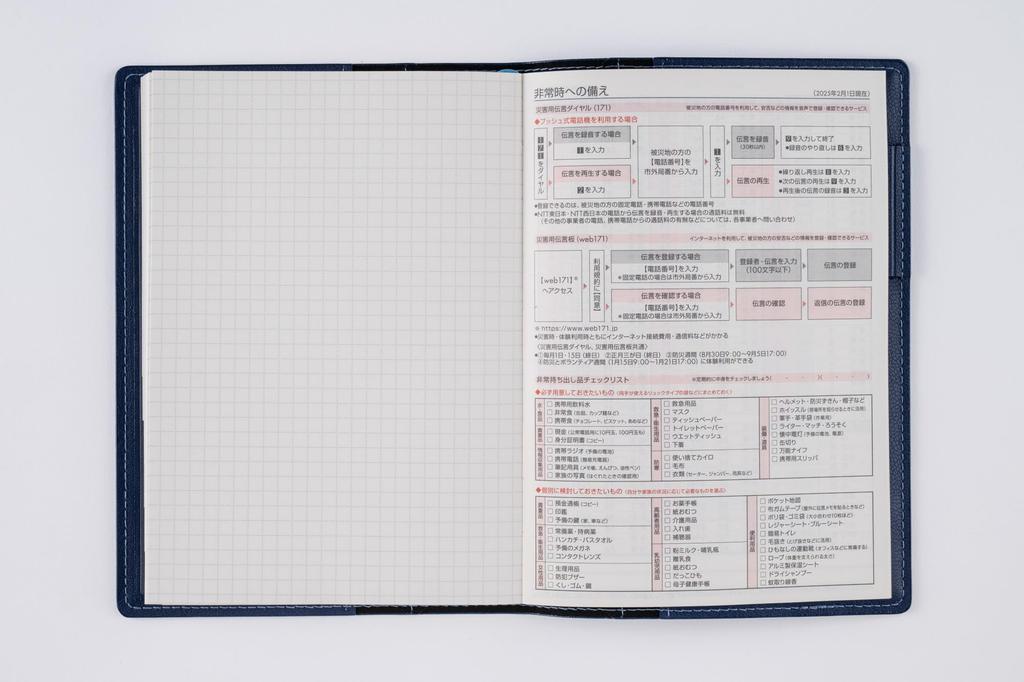 非常時への備え
(2025年2月1日現在)
災害用伝言ダイヤル (171)
被災地の方の電話番号を利用して、安否などの情報を音声で登録・確認できるサービス
◆プッシュ式電話機を利用する場合
171をダイヤル
伝言を録音する場合
1を入力
伝言を再生する場合
2を入力
被災地の方の
【電話番号】を
市外局番から入力
1を入力
伝言を録音
(30秒以内)
9を入力して終了
●録音のやり直しは8を入力
伝言の再生
●繰り返し再生は8を入力
●次の伝言の再生は9を入力
●再生後の伝言の録音は3を入力
●登録できるのは、被災地の方の固定電話・携帯電話などの電話番号
●NTT東日本・NTT西日本の電話から伝言を録音・再生する場合の通話料は無料
(その他の事業者の電話、携帯電話からの通話料の有無などについては、各事業者へ問い合わせ)
災害用伝言板 (web171)
インターネットを利用して、被災地の方の安否などの情報を登録・確認できるサービス
【web171】※
へアクセス
利用規約に【同意】
伝言を登録する場合
【電話番号】を入力
●固定電話の場合は市外局番から入力
登録者・伝言を入力
(100文字以下)
伝言の登録
伝言を確認する場合
【電話番号】を入力
●固定電話の場合は市外局番から入力
伝言の確認
返信の伝言の登録
※ https://www.web171.jp
●災害時・体験利用時ともにインターネット接続費用・通信料などがかかる
〈災害用伝言ダイヤル、災害用伝言板共通〉
●①毎月1日・15日 (終日) ②正月三が日 (終日) ③防災週間 (8月30日9:00〜9月5日17:00)
④防災とボランティア週間 (1月15日9:00〜1月21日17:00) に体験利用ができる
非常持ち出し品チェックリスト
※定期的に中身をチェックしましょう ( ・ ・ )( ・ ・ )
◆必ず用意しておきたいもの (両手が使えるリュックタイプの袋などにまとめておく)
水・食品
□ 携帯用飲料水
□ 非常食 (缶詰、カップ麺など)
□ 携帯食 (チョコレート、ビスケット、あめなど)
貴重品
□ 現金 (公衆電話用に10円玉、100円玉も)
□ 身分証明書 (コピー)
情報収集用品
□ 携帯ラジオ (予備の電池)
□ 携帯電話 (簡易充電器)
□ 筆記用具 (メモ帳、えんぴつ、油性ペン)
□ 家族の写真 (はぐれたときの確認用)
救急・衛生用品
□ 救急用品
□ マスク
□ ティッシュペーパー
□ トイレットペーパー
□ ウエットティッシュ
□ 下着
防寒
□ 使い捨てカイロ
□ 毛布
□ 衣類 (セーター、ジャンパー、雨具など)
装備・道具
□ ヘルメット・防災ずきん・帽子など
□ ホイッスル (居場所を知らせるときに活用)
□ 軍手・革手袋 (作業用)
□ ライター・マッチ・ろうそく
□ 懐中電灯 (予備の電池、電源)
□ 缶切り
□ 万能ナイフ
□ 携帯用スリッパ
◆個別に検討しておきたいもの (自分や家族の状況に応じて必要なものを選ぶ)
貴重品
□ 預金通帳 (コピー)
□ 印鑑
□ 予備の鍵 (家、車など)
救急・衛生用品
□ 常備薬・持病薬
□ ハンカチ・バスタオル
□ 予備のメガネ
□ コンタクトレンズ
女性用品
□ 生理用品
□ 防犯ブザー
□ くし・ゴム・鏡
高齢者用品
□ お薬手帳
□ 紙おむつ
□ 介護用品
□ 入れ歯
□ 補聴器
乳幼児用品
□ 粉ミルク・哺乳瓶
□ 離乳食
□ 紙おむつ
□ だっこひも
□ 母子健康手帳
便利用品
□ ポケット地図
□ 布ガムテープ (屋外に伝言メモを貼るときなど)
□ ポリ袋・ゴミ袋 (大小合わせ10枚ほど)
□ レジャーシート・ブルーシート
□ 簡易トイレ
□ 毛抜き (とげ抜きなどに活用)
□ ひもなしの運動靴 (オフィスなどに常備する)
□ ロープ (体重を支えられる太さ)
□ アルミ製保温シート
□ ドライシャンプー
□ 蚊取り線香